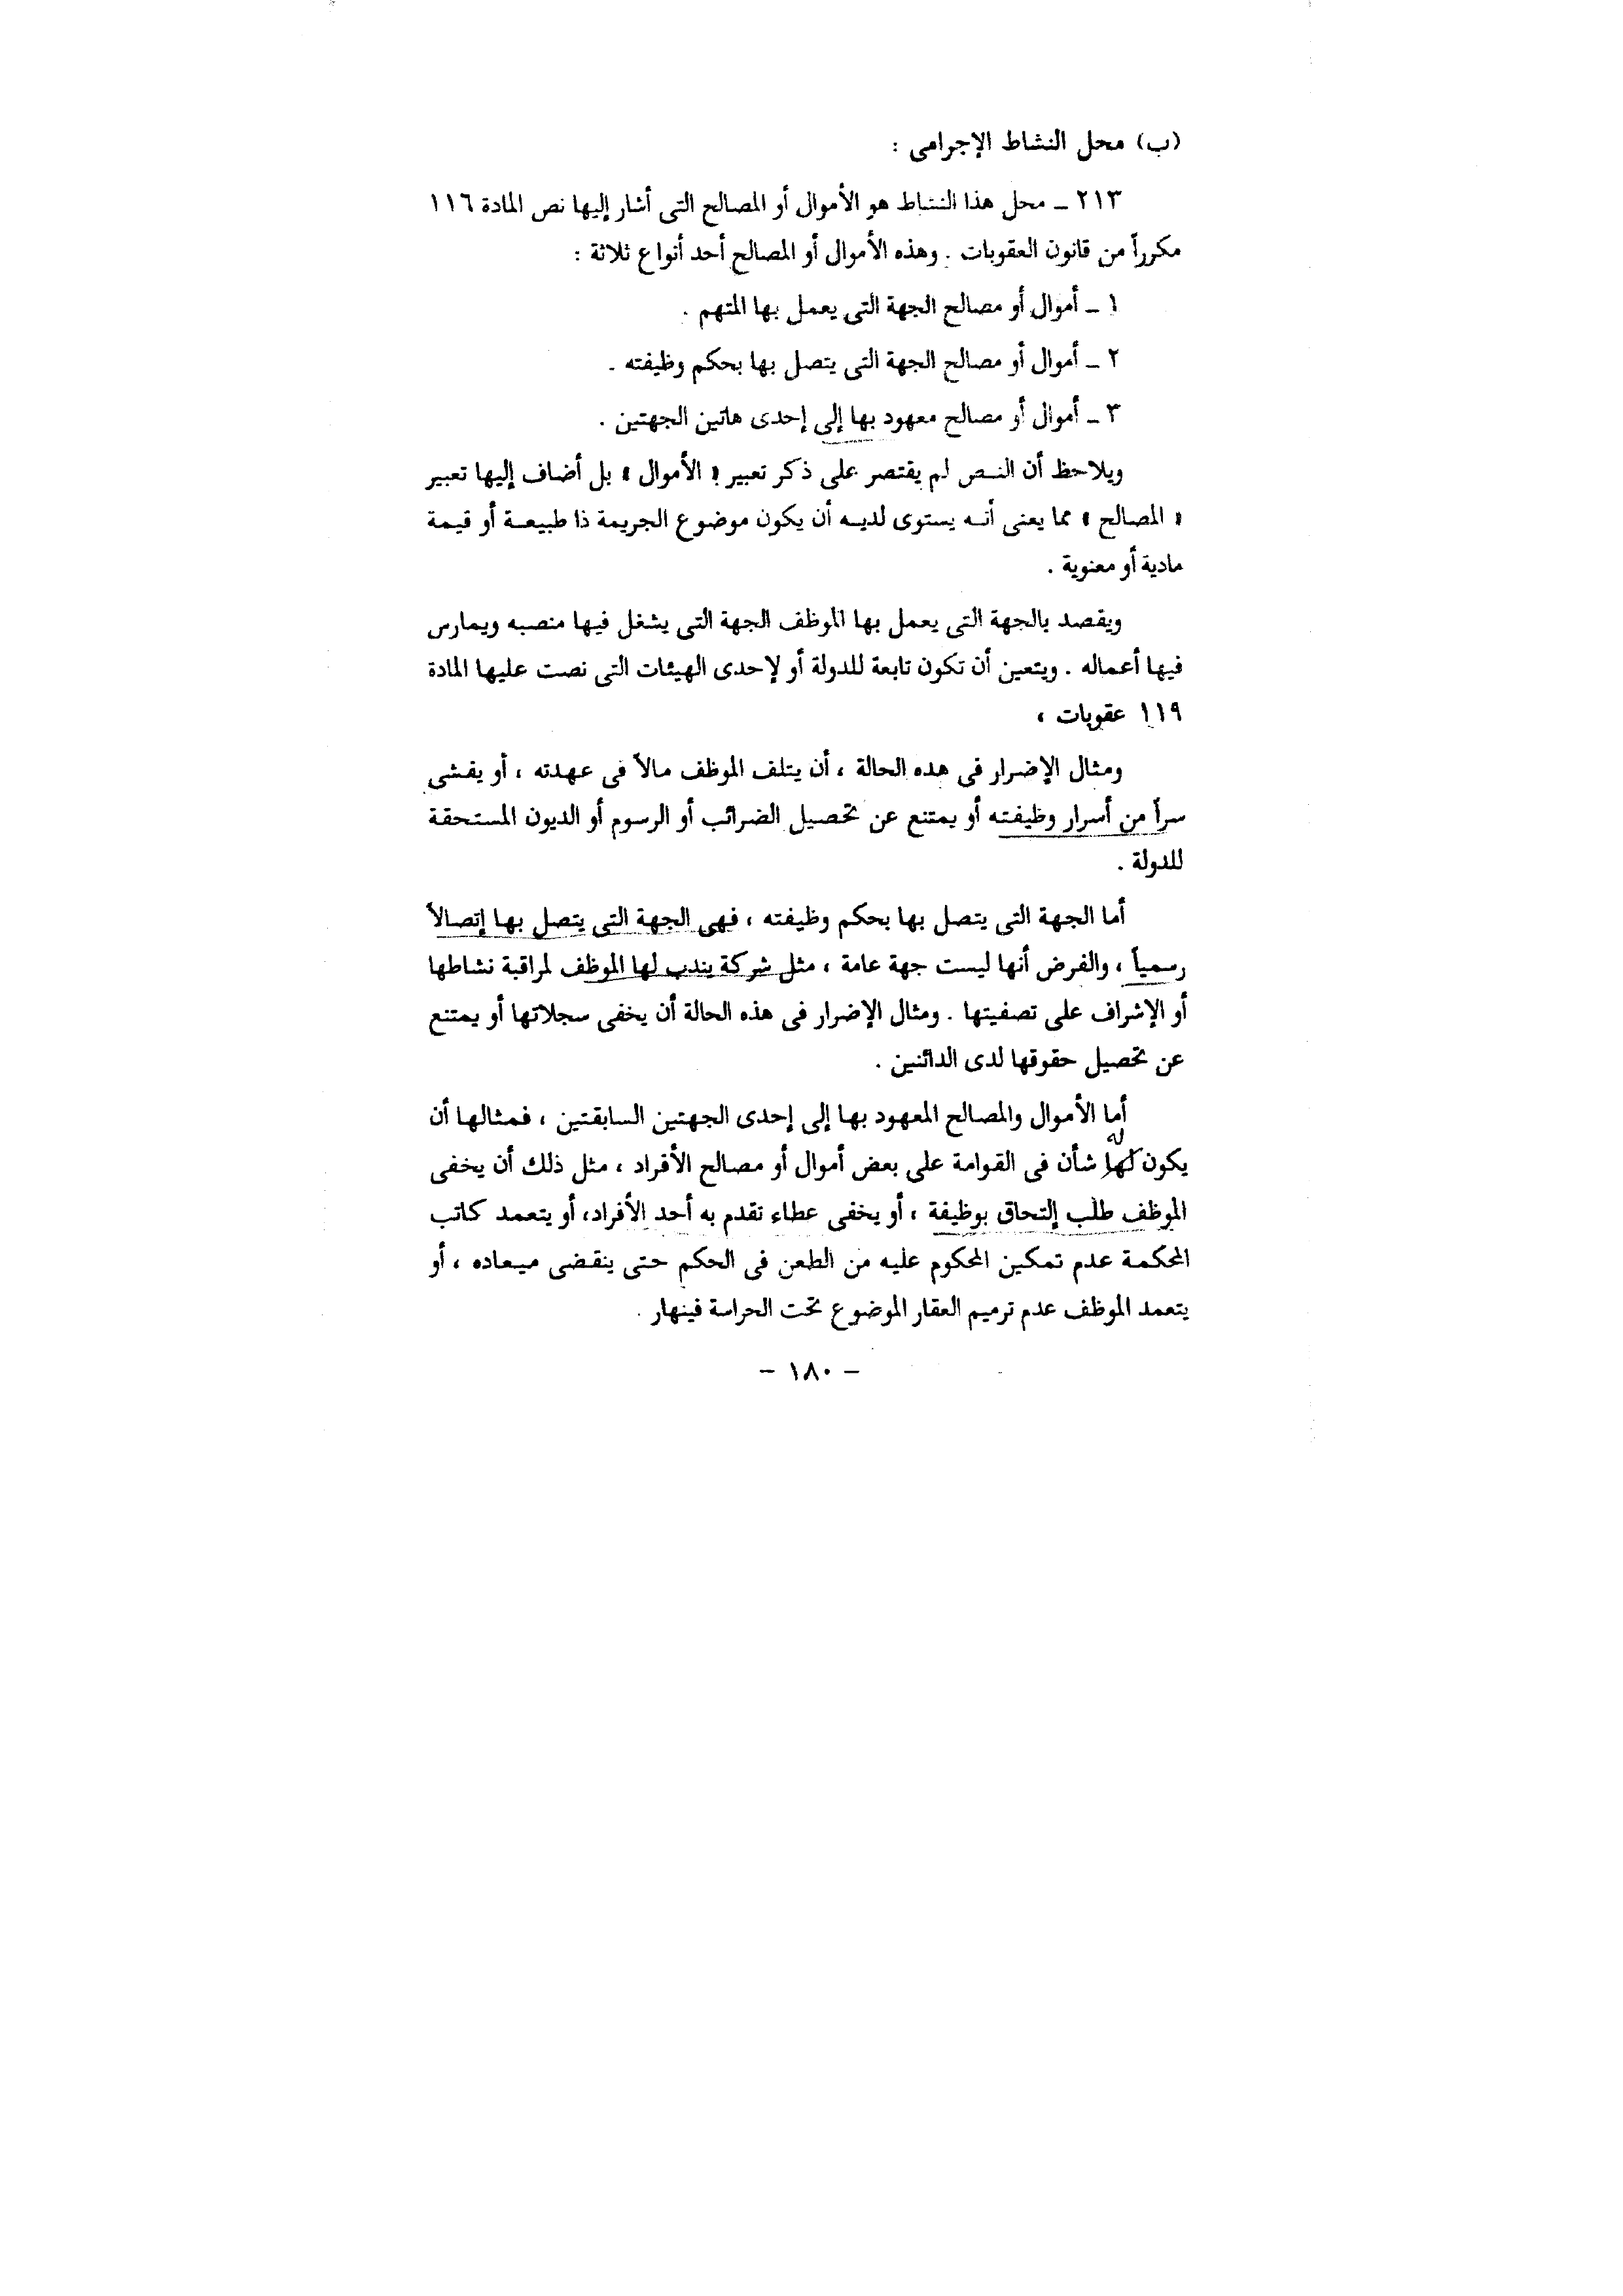 (ب) محل النشاط الإجرامى :
٢١٣ ـ محل هذا النشاط هو الأموال أو المصالح التى أشار إليها نص المادة ١١٦
مكرراً من قانون العقوبات . وهذه الأموال أو المصالح أحد أنواع ثلاثة :
١ ـ أموال أو مصالح الجهة التى يعمل بها المتهم .
٢ ـ أموال أو مصالح الجهة التى يتصل بها بحكم وظيفته .
٣ ـ أموال أو مصالح معهود بها إلى إحدى هاتين الجهتين .
ويلاحظ أن النص لم يقتصر على ذكر تعبير « الأموال » بل أضاف إليها تعبير
« المصالح » مما يعنى أنه يستوى لديه أن يكون موضوع الجريمة ذا طبيعة أو قيمة
مادية أو معنوية .
ويقصد بالجهة التى يعمل بها الموظف الجهة التى يشغل فيها منصبه ويمارس
فيها أعماله . ويتعين أن تكون تابعة للدولة أو لإحدى الهيئات التى نصت عليها المادة
١١٩ عقوبات ،
ومثال الإضرار فى هذه الحالة ، أن يتلف الموظف مالاً فى عهدته ، أو يفشى
سراً من أسرار وظيفته أو يمتنع عن تحصيل الضرائب أو الرسوم أو الديون المستحقة
للدولة .
أما الجهة التى يتصل بها بحكم وظيفته ، فهى الجهة التى يتصل بها إتصالاً
رسمياً ، والفرض أنها ليست جهة عامة ، مثل شركة يندب لها الموظف لمراقبة نشاطها
أو الإشراف على تصفيتها . ومثال الإضرار فى هذه الحالة أن يخفى سجلاتها أو يمتنع
عن تحصيل حقوقها لدى الدائنين .
أما الأموال والمصالح المعهود بها إلى إحدى الجهتين السابقتين ، فمثالها أن
يكون لها له شأن فى القوامة على بعض أموال أو مصالح الأفراد ، مثل ذلك أن يخفى
الموظف طلب إلتحاق بوظيفة ، أو يخفى عطاء تقدم به أحد الأفراد، أو يتعمد كاتب
المحكمة عدم تمكين المحكوم عليه من الطعن فى الحكم حتى ينقضى ميعاده ، أو
يتعمد الموظف عدم ترميم العقار الموضوع تحت الحراسة فينهار .
– ١٨٠ –